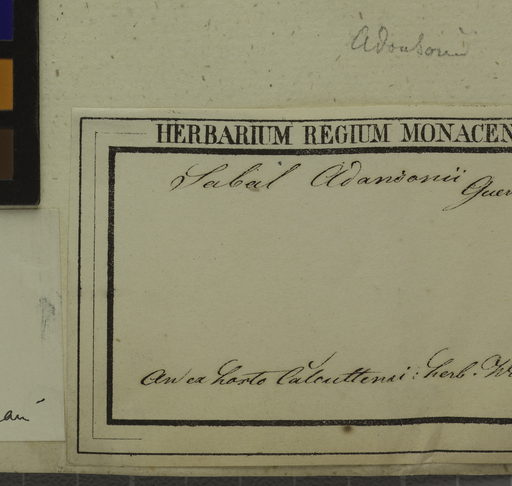 Adansonii
HERBARIUM REGIUM MONACEN
Sabal Adansonii Guer
An ex horto Calcuttensi: herb. W